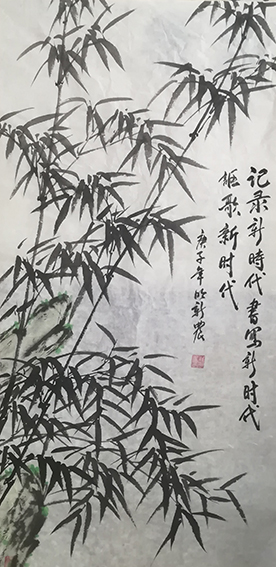 记录新時代書写新时代
讴歌新时代
庚子年